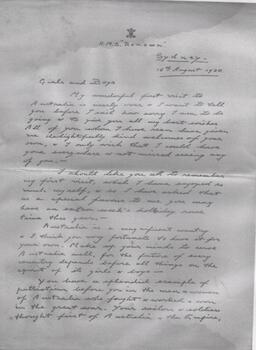 H.M.S. "Renown"
Sydney.
16th August 1920.
Girls and Boys
My wonderful first visit to
Australia is nearly over & I want to tell
you before I sail how sorry I am to be
going & to give you all my best wishes
All of you whom I have seen have given
me delightfully kind welcomes of your
own, & I only wish that I could have
gone everywhere & not missed seeing any
of you —
I should like you all to remember
my first visit, which I have enjoyed so
much myself, & so I have asked that
as a special favour to me you may
have an extra week's holiday some
time this year —
Australia is a magnificent country
& I think you very fortunate to have it for
your own. Make up your minds to serve
Australia well, for the future of every
country depends before all things on the
spirit of its girls & boys —
You have a splendid example of
patriotism before you in the men & women
of Australia who fought & worked & won
in the great war. Your sailors & soldiers
thought first of Australia & the Empire,